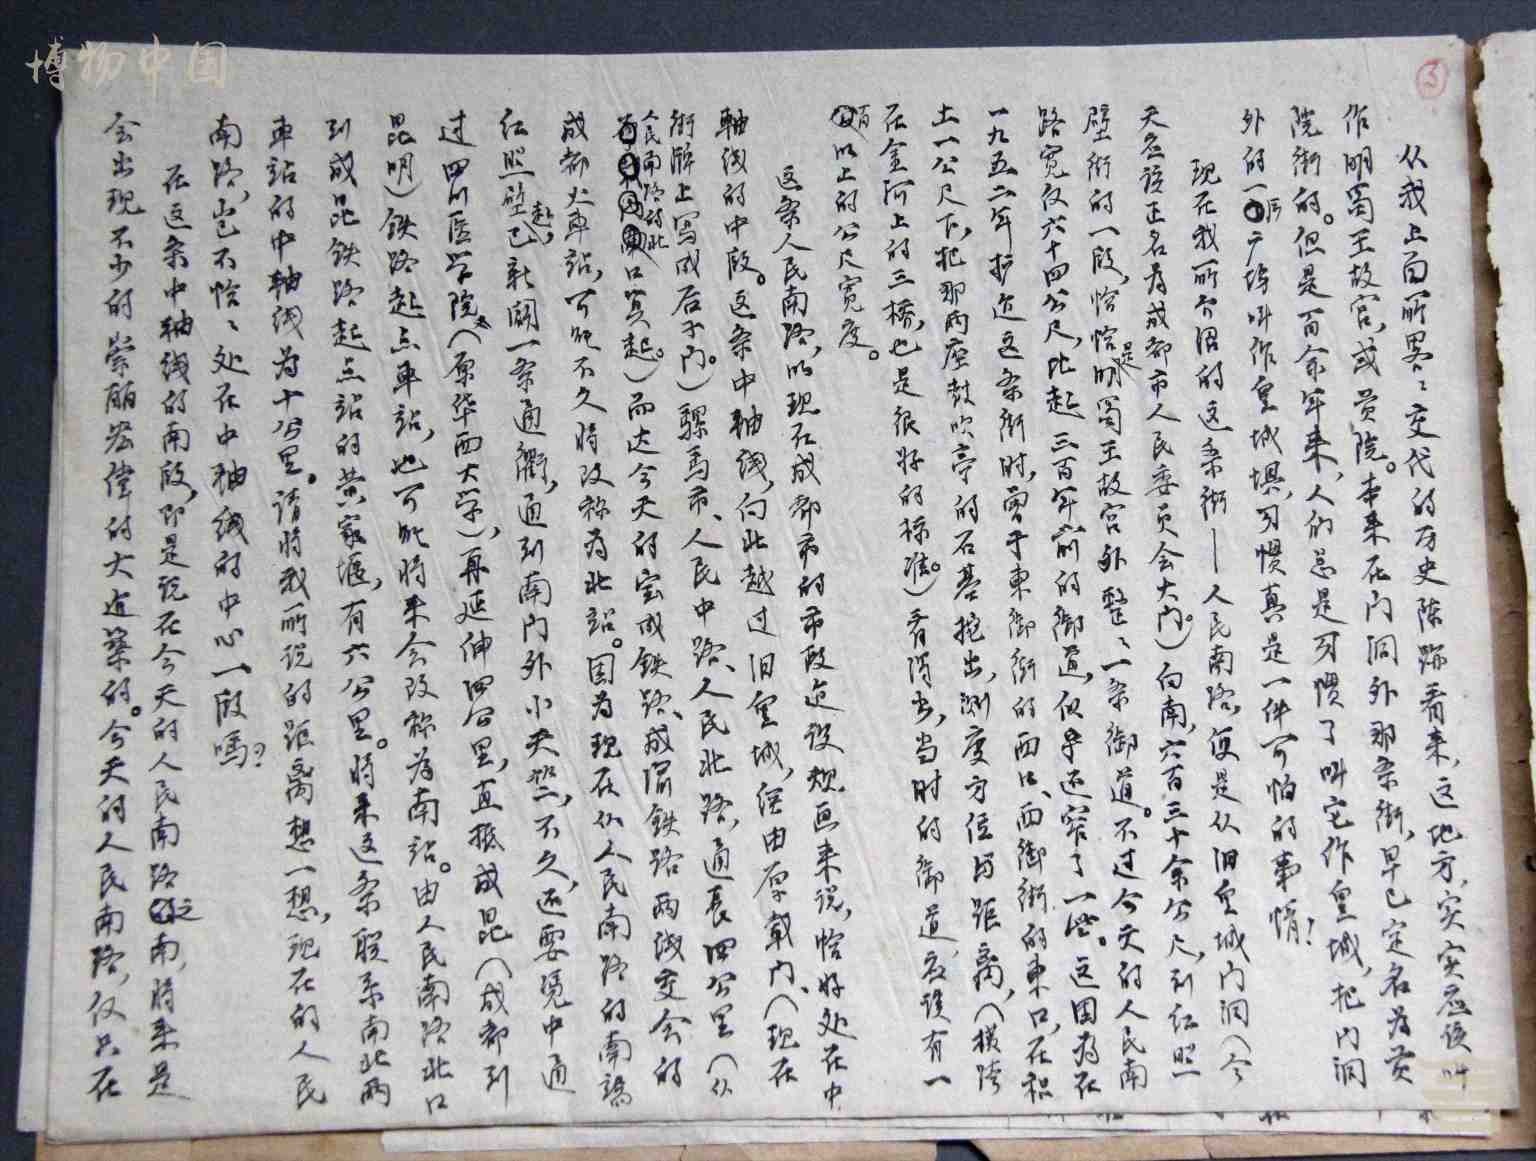 博物中国
3
从我上面所略略交代的历史陈迹看来，这地方，实实应该叫
作明蜀王故宫，或贡院。本来在门洞外那条街，早已定名为贡
院街的。但是百余年来，人们总是习惯了叫它作皇城，把门洞
外的一广场叫作皇城坝，习惯真是一件可怕的事情！
现在我所介绍的这条街——人民南路，便是从旧皇城门洞（今
天应该正名为成都市人民委员会大门。）向南，六百三十余公尺，到红照
壁街的一段，恰恰是明蜀王故宫外整整一条御道。不过今天的人民南
路宽仅六十四公尺，比起三百年前的御道，似乎还窄了一些。这因为在
一九五二年扩建这条街时，曾于东御街的西口、西御街的东口，在积
土一公尺下，把那两座鼓吹亭的石基挖出，测度方位与距离，（横跨
在金河上的三桥，也是很好的标准。）看得出，当时的御道，应该有一
百以上的公尺宽度。
这条人民南路，以现在成都市的市政建设规画来说，恰好处在中
轴线的中段。这条中轴线，向北越过旧皇城，经由厚载门、（现在
街牌上写成后子门。）骡马市、人民中路、人民北路，通长四公里（从
人民南路的北口算起。）而达今天的宝成铁路、成渝铁路两线交会的
成都火车站，可能不久将改称为北站。因为现在从人民南路的南端
红照壁起，已新辟一条通衢，通到南门外小天竺，不久，还要宽中通
过四川医学院，（原华西大学），再延伸四公里，直抵成昆（成都到
昆明）铁路起点车站，也可能将来会改称为南站。由人民南路北口
到成昆铁路起点站的黄家堰，有六公里。将来这条联系南北两
车站的中轴线为十公里。请将我所说的距离想一想，现在的人民
南路，岂不恰恰处在中轴线的中心一段吗？
在这条中轴线的南段，即是说在今天的人民南路之南，将来是
会出现不少的崇丽宏伟的大建筑的。今天的人民南路，仅只在